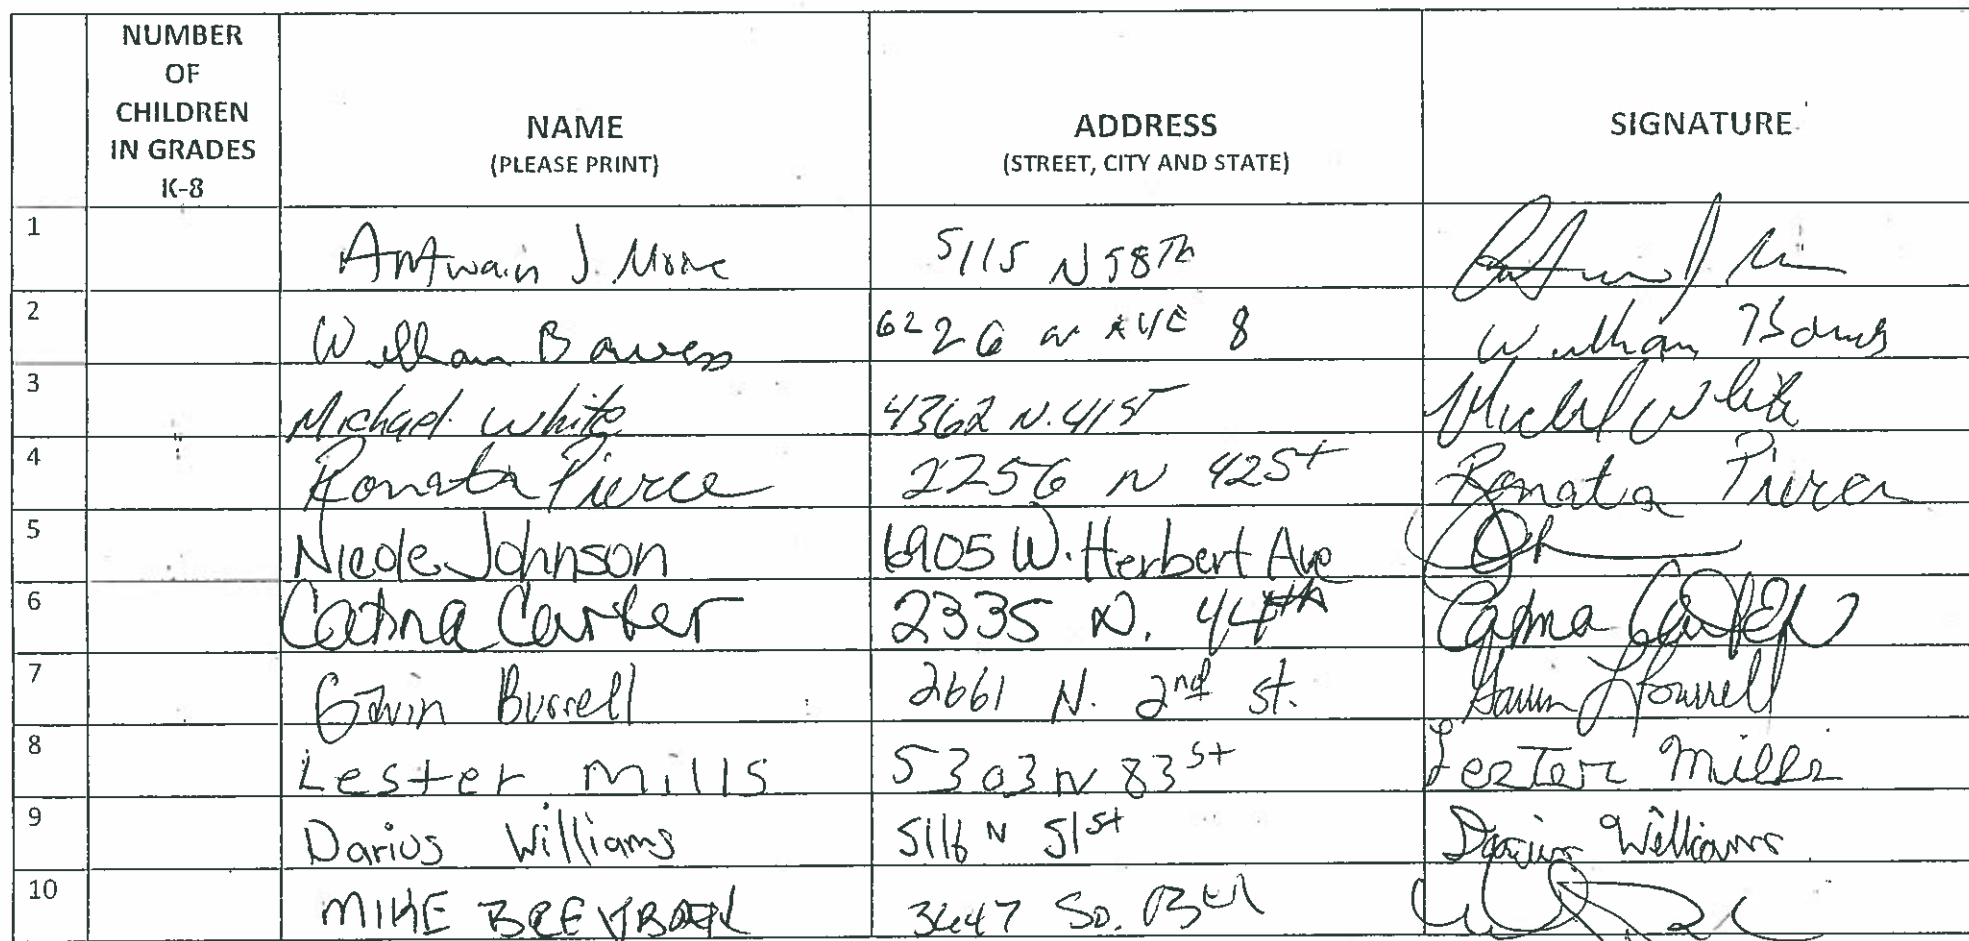 NUMBER
OF
CHILDREN
IN GRADES
K-8
NAME
(PLEASE PRINT)
ADDRESS
(STREET, CITY AND STATE)
SIGNATURE
1 Antwain J. Moore 5115 N 58Th
2 William 6226 N AVE 8 William
3 Michael White 4362 N. 41ST Michael White
4 Ronata Pierce 2256 N 42St Ronata Pierce
5 Nicole Johnson 6905 W. Herbert Ave
6 Catina Carter 2335 N. 44th Catina Carter
7 Gavin Burrell 2661 N. 2nd St. Gavin Burrell
8 Lester Mills 5303 N 83st Lester Mills
9 Darius Williams 5116 N 51st Darius Williams
10 MIKE 3647 So.